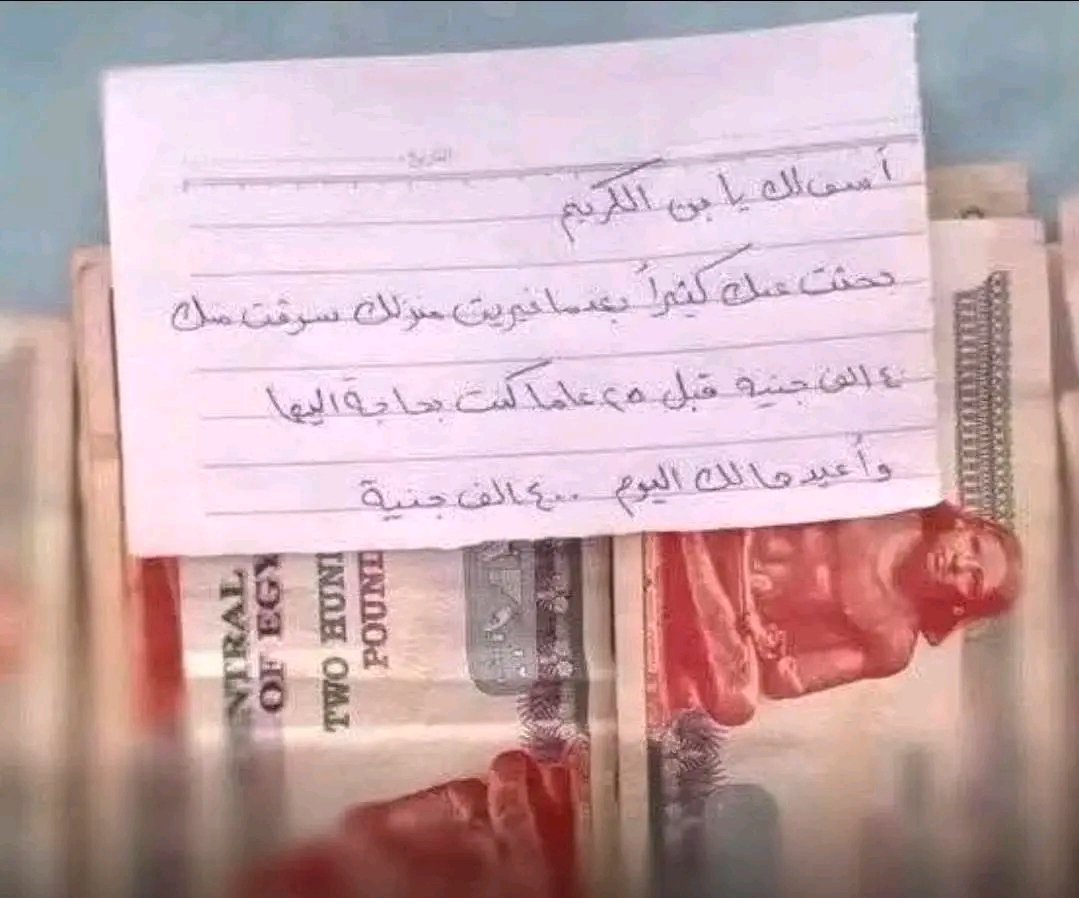 التاريخ
أسف لك يا بن الكريم
بحثت عنك كثيراً بعدما غيرت منزلك سرقت منك
٤٠ الف جنية قبل ٢٥ عاما كنت بحاجة اليها
وأعيدها لك اليوم ٤٠٠ الف جنية
NTRAL
OF EGY
TWO HUN
POUND